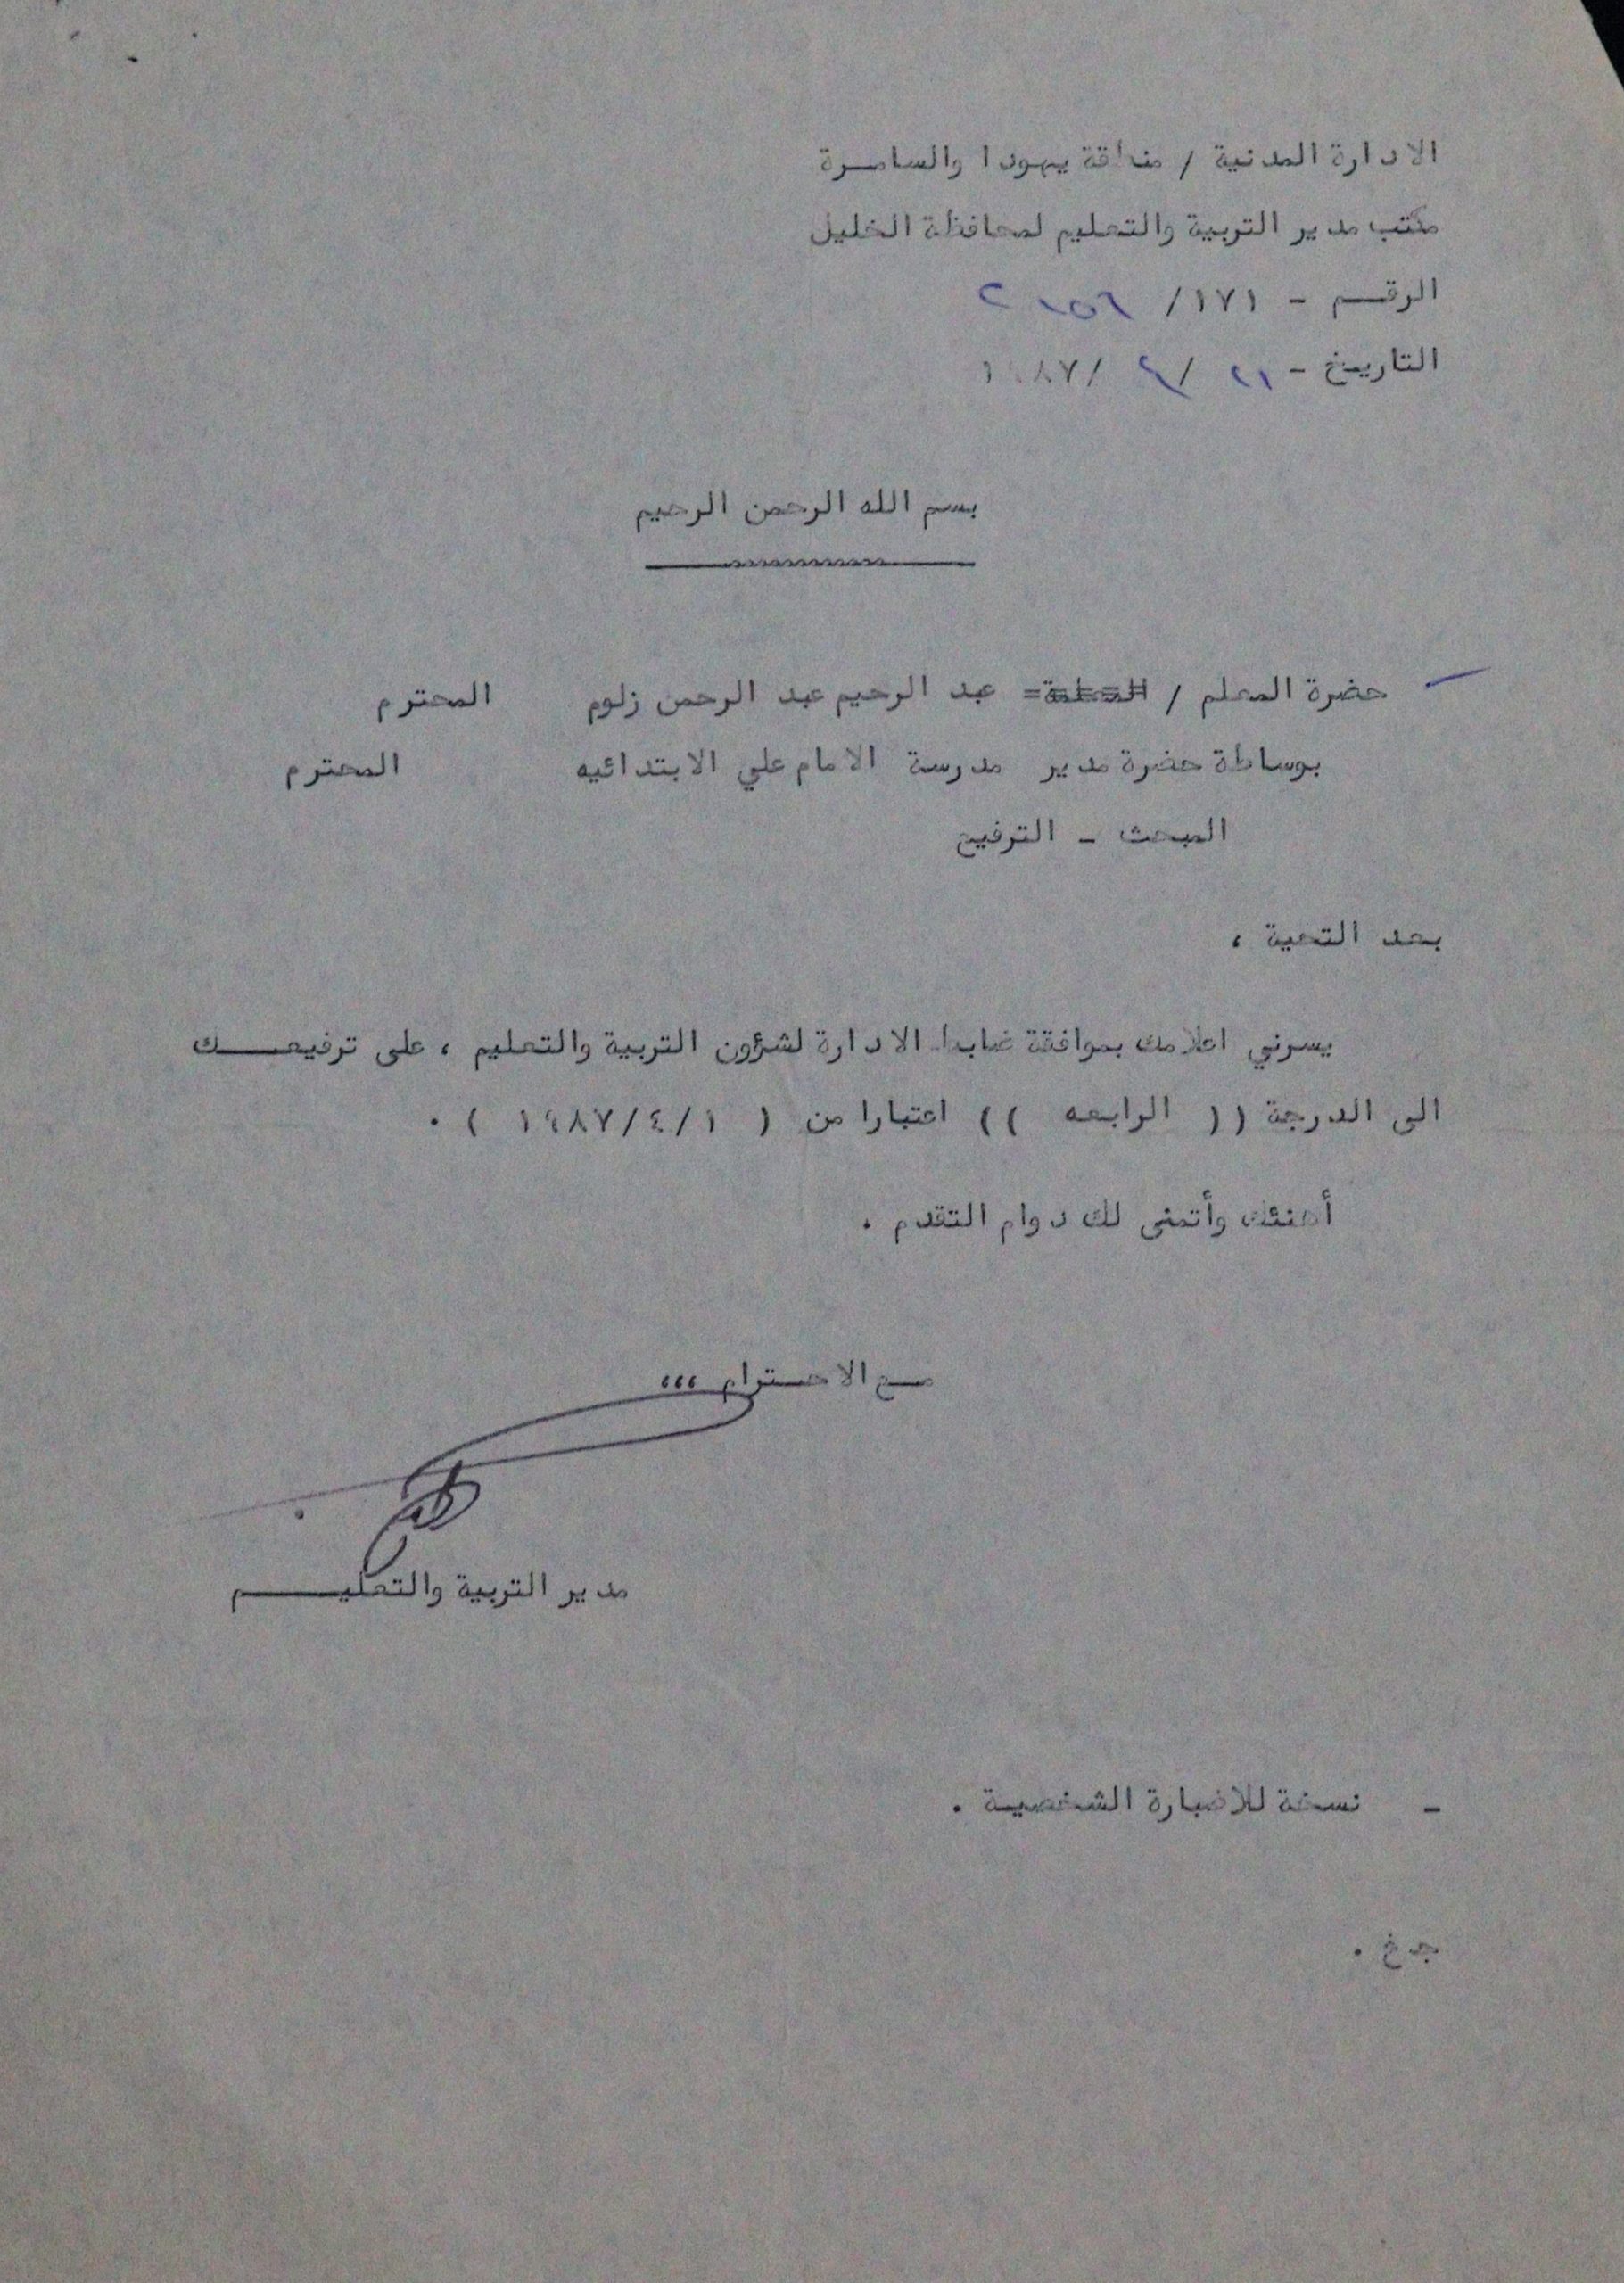 الادارة المدنية / منطقة يهودا والسامرة
مكتب مدير التربية والتعليم لمحافظة الخليل
الرقم - ١٧١/
التاريخ - ٢١ / / ١٩٨٧
بسم الله الرحمن الرحيم
حضرة المعلم / المعلمة= عبد الرحيم عبد الرحمن زلوم المحترم
بوساطة حضرة مدير مدرسة الامام علي الابتدائيه المحترم
المبحث - الترفيع
بعد التحية ،
يسرني اعلامك بموافقة ضابط الادارة لشؤون التربية والتعليم ، على ترفيعك
الى الدرجة (( الرابعه )) اعتبارا من ( ١٩٨٧/٤/١ ) .
أهنئك وأتمنى لك دوام التقدم .
مع الاحترام ،،،
مدير التربية والتعليم
- نسخة للاضبارة الشخصية .
ج غ .